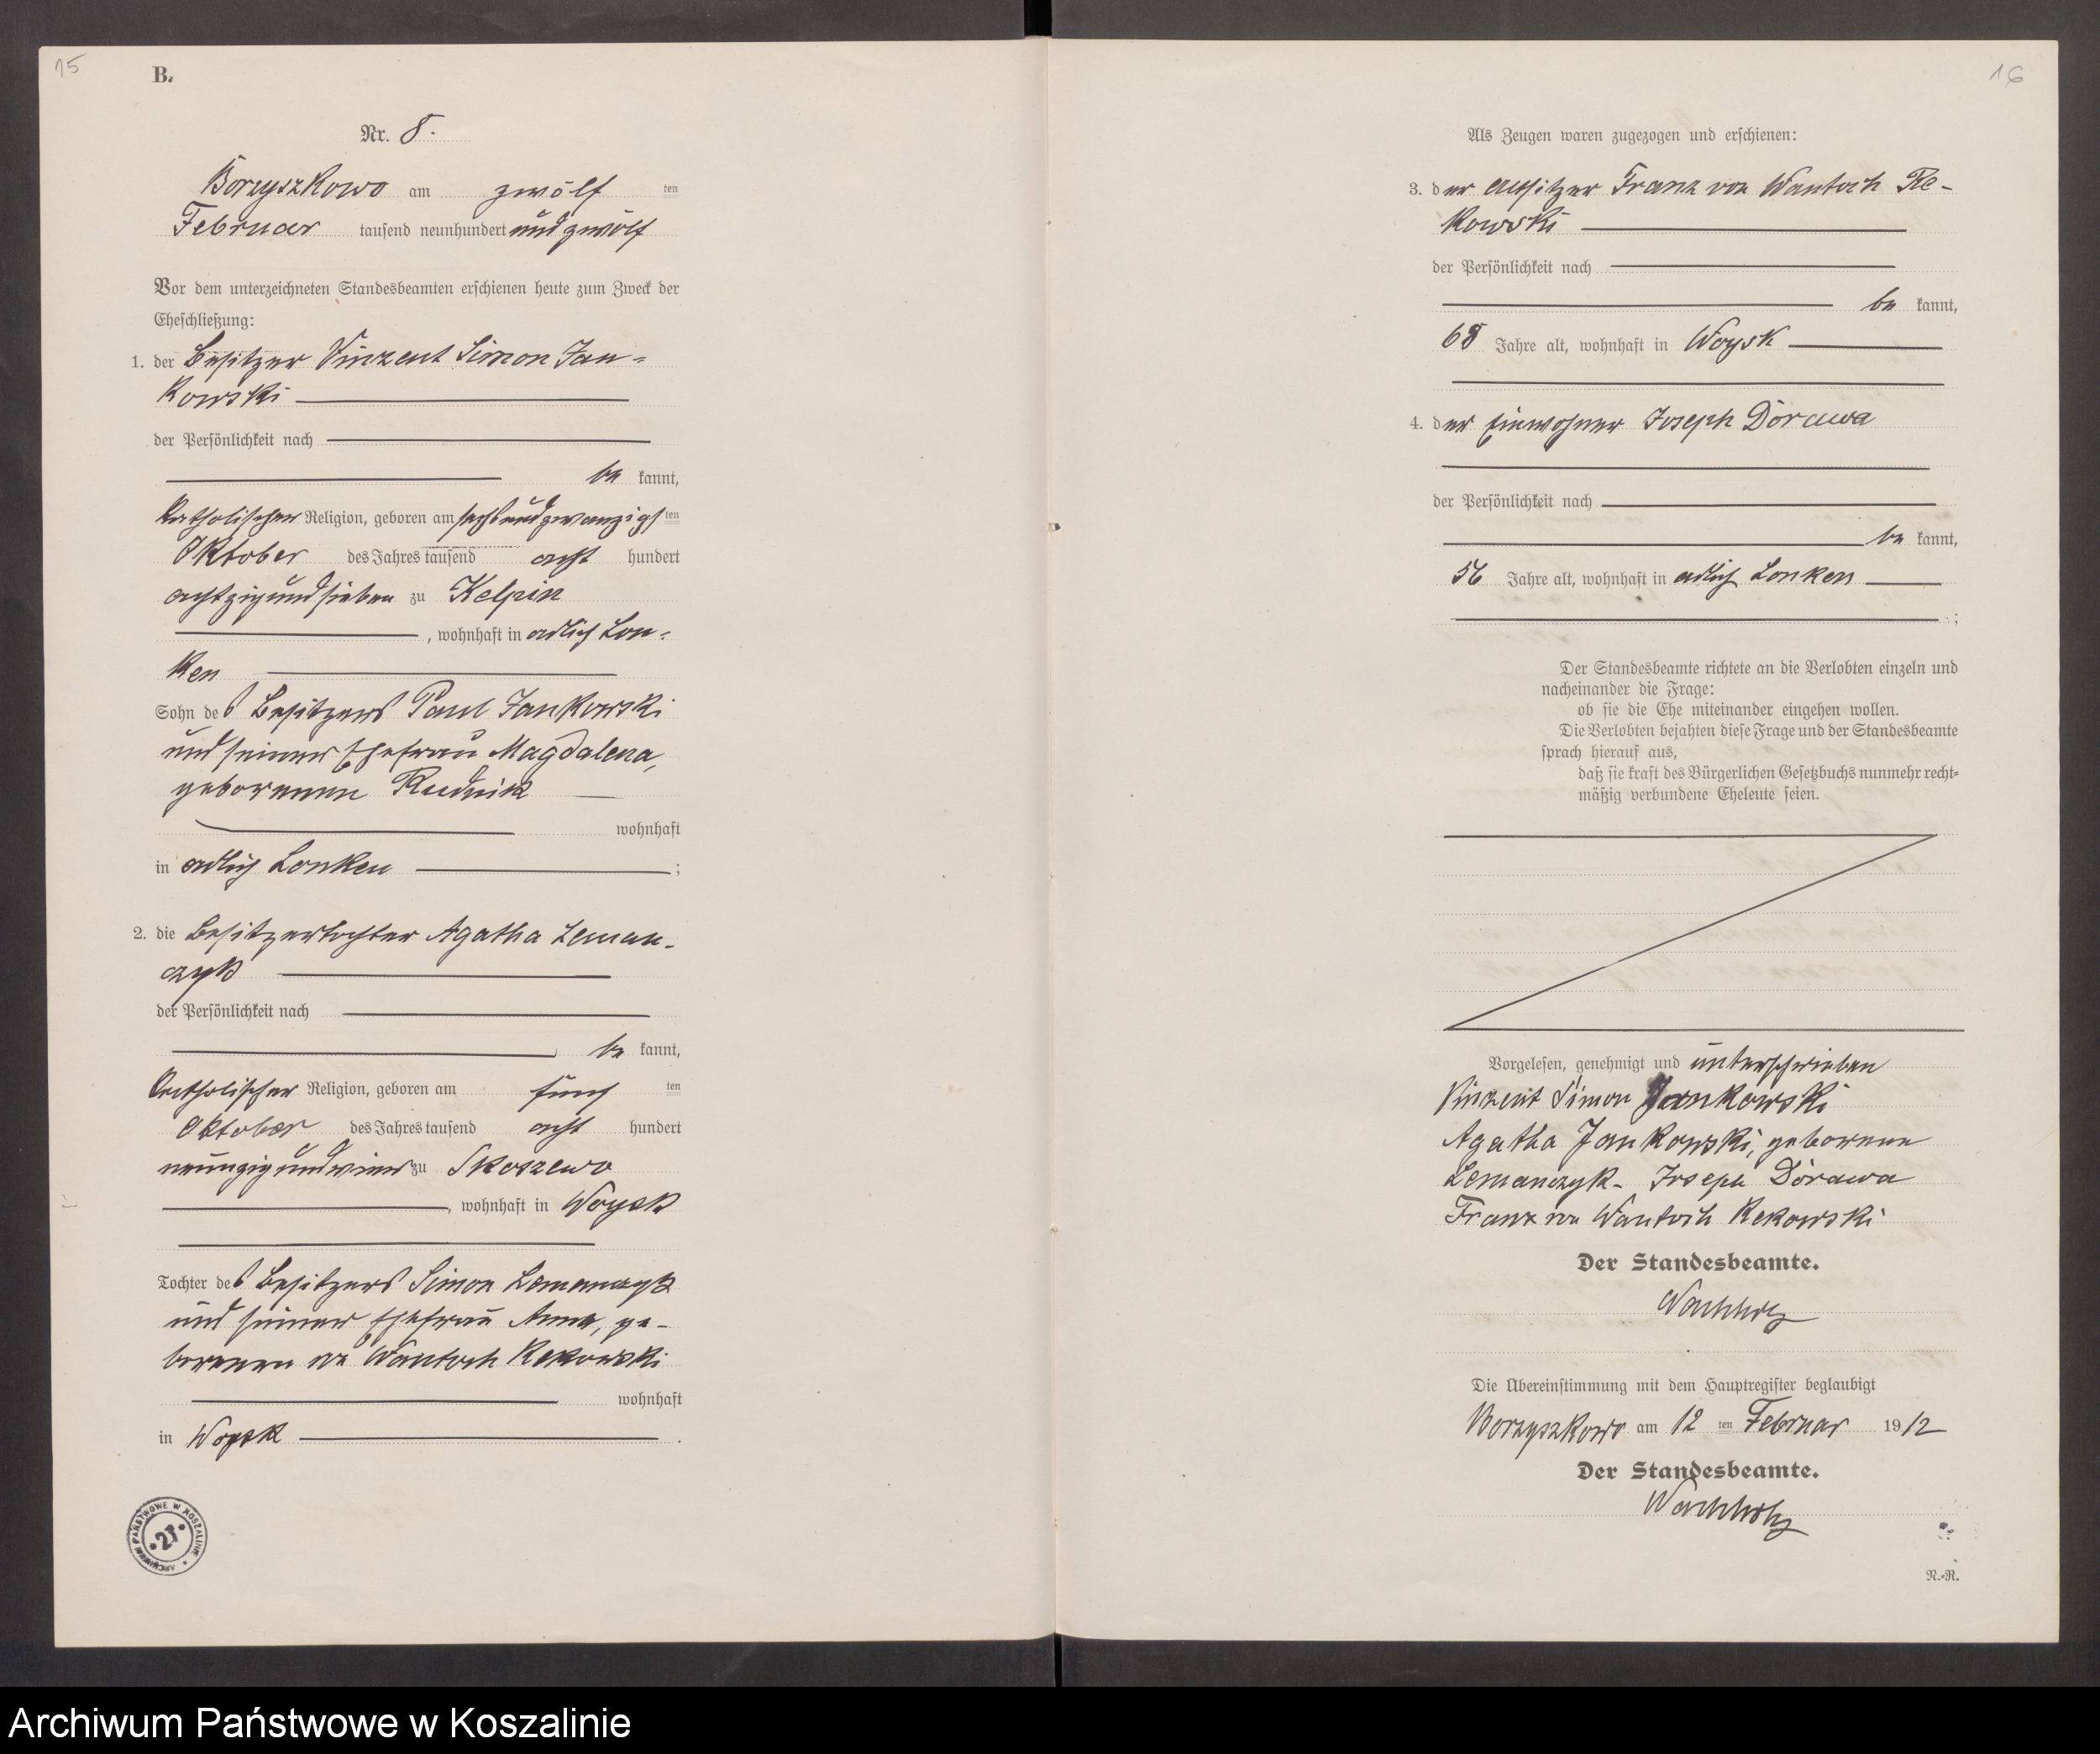 15
B.
Nr. 8.
Borzyszkowo am zwölf ten
Februar tausend neunhundert und zwölf
Vor dem unterzeichneten Standesbeamten erschienen heute zum Zweck der
Eheschließung:
1. der Besitzer Vinzent Simon Jan=
kowski
der Persönlichkeit nach
be kannt,
katholischer Religion, geboren am sechsundzwanzigs ten
Oktober des Jahres tausend acht hundert
achtzigundsieben zu Kelpin
, wohnhaft in adlich Lon=
ken
Sohn des Besitzers Paul Jankowski
und seiner Ehefrau Magdalena,
geborenen Rudnik
wohnhaft
in adlich Lonken ;
2. die Besitzertochter Agatha Leman-
czyk
der Persönlichkeit nach
be kannt,
katholischer Religion, geboren am fünf ten
Oktober des Jahres tausend acht hundert
neunzigundvier zu Skoszewo
, wohnhaft in Woysk
Tochter des Besitzers Simon Lemanczyk
und seiner Ehefrau Anna, ge-
borenen von Wantoch Rekowski
wohnhaft
in Woysk .
ARCHIWUM PAŃSTWOWE W KOSZALINIE
27
16
Als Zeugen waren zugezogen und erschienen:
3. der Altsitzer Franz von Wantoch Re-
kowski
der Persönlichkeit nach
be kannt,
68 Jahre alt, wohnhaft in Woysk
4. der Einwohner Joseph Dorawa
der Persönlichkeit nach
be kannt,
56 Jahre alt, wohnhaft in adlich Lonken
;
Der Standesbeamte richtete an die Verlobten einzeln und
nacheinander die Frage:
ob sie die Ehe miteinander eingehen wollen.
Die Verlobten bejahten diese Frage und der Standesbeamte
sprach hierauf aus,
daß sie kraft des Bürgerlichen Gesetzbuchs nunmehr recht=
mäßig verbundene Eheleute seien.
Vorgelesen, genehmigt und unterschrieben
Vinzent Simon Jankowski
Agatha Jankowski, geborene
Lemanczyk- Joseph Dorawa
Franz von Wantoch Rekowski
Der Standesbeamte.
Wachholz
Die Übereinstimmung mit dem Hauptregister beglaubigt
Borzyszkowo am 12 ten Februar 1912
Der Standesbeamte.
Wachholz
N.-R.
Archiwum Państwowe w Koszalinie